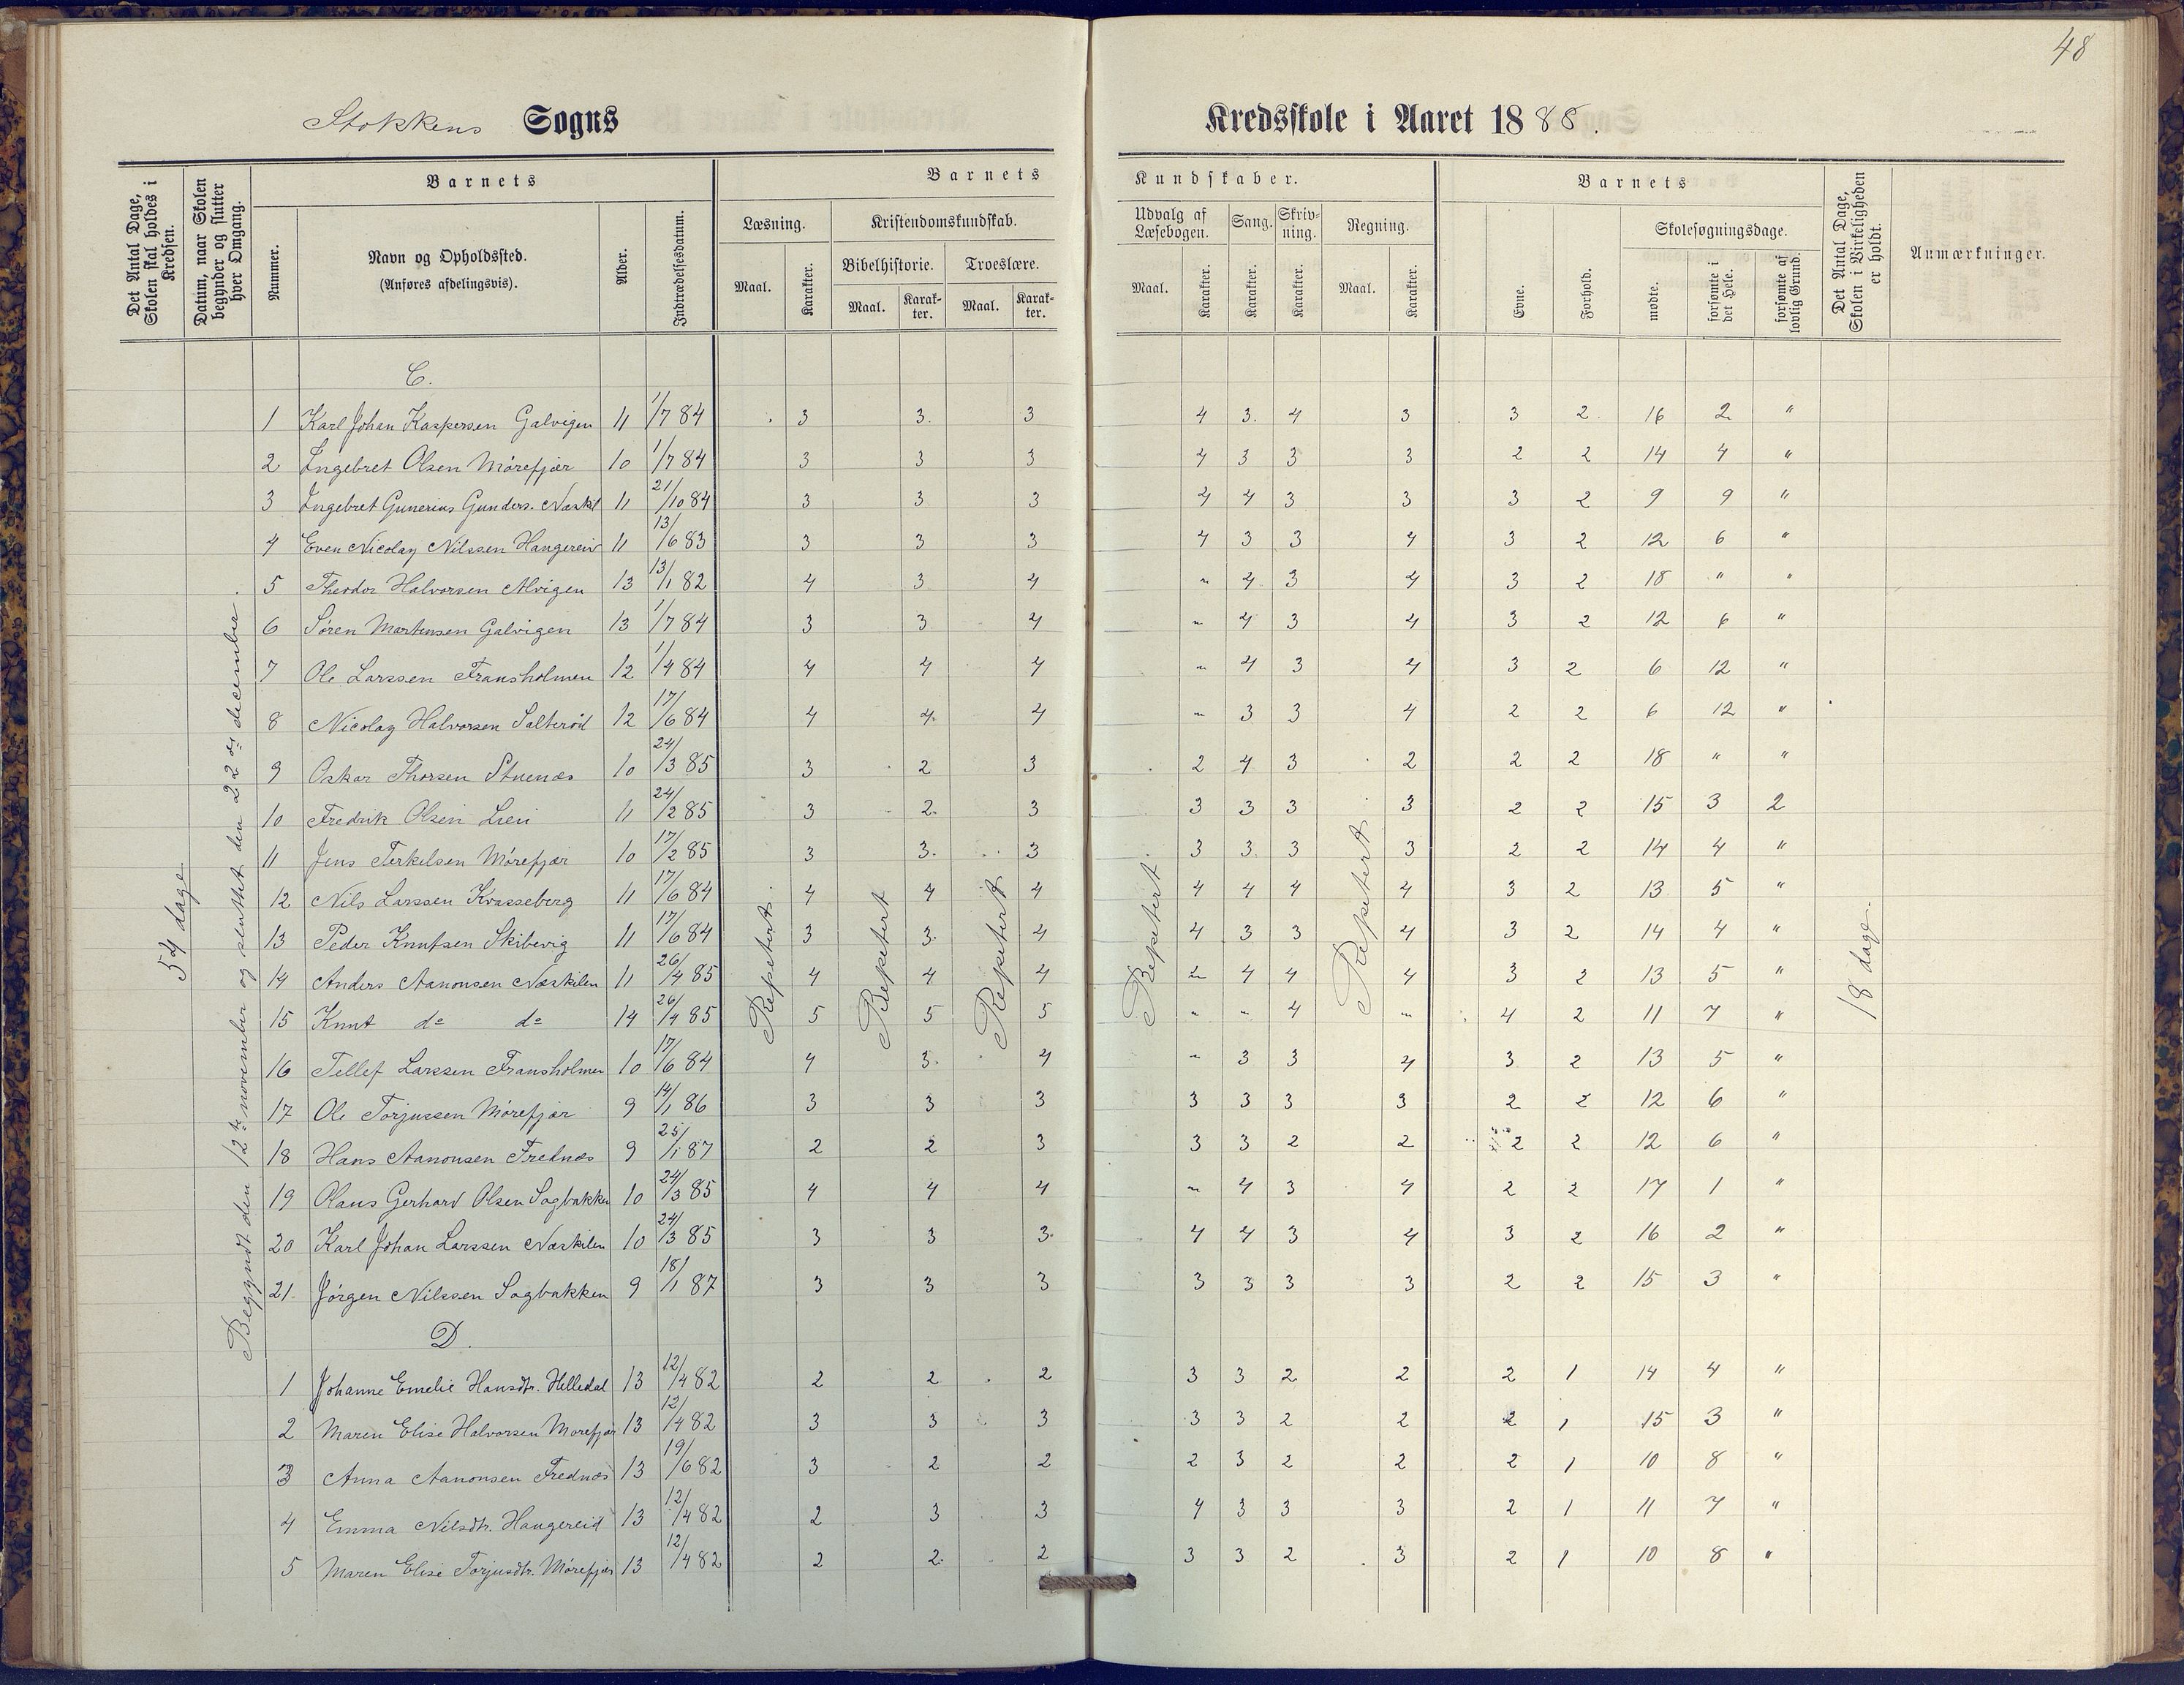 48
Stokkens Sogns Kredsskole i Aaret 1888.
Det Antal Dage, Skolen skal holdes i Kredsen.
Datum, naar Skolen begynder og slutter hver Omgang.
Barnets
Nummer.
Navn og Opholdssted.
(Anføres afdelingsvis).
Alder.
Indtrædelsesdatum.
Barnets Kundskaber.
Læsning.
Maal.
Karakter.
Kristendomskundskab.
Bibelhistorie.
Maal.
Karak-ter.
Troeslære.
Maal.
Karak-ter.
Udvalg af Læsebogen.
Maal.
Karakter.
Sang.
Karakter.
Skriv-ning.
Karakter.
Regning.
Maal.
Karakter.
Barnets
Evne.
Forhold.
Skolesøgningsdage.
mødte.
forsømte i det Hele.
forsømte af lovlig Grund.
Det Antal Dage, Skolen i Virkeligheden er holdt.
Anmærkninger.
54 dage
Begyndt den 12te november og sluttet den 22de december.
Repetert.
Repetert
Repetert
Repetert.
Repetert.
18 dage.
C.
1 Karl Johan Kaspersen Galvigen 11 1/7 84 3 3. 3 4 3. 4 3 3 2. 16 2 "
2 Ingebret Olsen Mørefjær 10 1/7 84 3 3 3 4 3 3 3 2 2 14 4 "
3 Ingebret Gunerius Gunders. Næskil 11 21/10 84 3 3 3 4 4 3 3 3 2 9 9 "
4 Even Nicolay Nilssen Hangereid 11 13/6 83 3 3 3 4 3 3 4 3 2 12 6 "
5 Theodor Halvorsen Alvigen 13 13/1 82 4 3 4 " 4 3 4 3 2 18 " "
6 Søren Martensen Galvigen 13 1/7 84 3 3 4 " 4 3 4 3 2 12 6 "
7 Ole Larssen Fransholmen 12 1/4 84 4 4 4 " 4 3 4 3 2 6 12 "
8 Nicolay Halvorsen Salterød 12 17/6 84 4 4. 4 " 3 3 4 2 2 6 12 "
9 Oskar Thorsen Stuenæs 10 24/3 85 3 2 3 2 4 3 2 2 2 18 " "
10 Fredrik Olsen Lien 11 24/2 85 3 2. 3 3 3 3 3 2 2 15 3 2
11 Jens Terkelsen Mørefjær 10 17/2 85 3 3. 3 3 3 3 3 2 2 14 4 "
12 Nils Larssen Krasseberg 11 17/6 84 4 4 4 4 4 4 4 3 2 13 5 "
13 Peder Knutsen Skibevig 11 17/6 84 3 3. 4 4 3 3 4 3 2 14 4 "
14 Anders Aanonsen Næskilen 11 26/4 85 4 4 4 " 4 4 4 3 2 13 5 "
15 Knut do do 14 26/4 85 5 5 5 " " 4 " 4 2 11 7 "
16 Tellef Larssen Fransholmen 10 17/6 84 4 3. 4 " 3 3 4 3 2 13 5 "
17 Ole Torjussen Mørefjær 9 14/1 86 3 3 3 3 3 3 3 2 2 12 6 "
18 Hans Aanonsen Frednæs 9 25/1 87 2 2 3 3 3 2 2 2 2 12 6 "
19 Olaus Gerhard Olsen Sagbakken 10 24/3 85 4 4 4 " 4 3 4 2 2 17 1 "
20 Karl Johan Larssen Næskilen 10 24/3 85 3 3 3. 4 4 3 4 3 2 16 2 "
21. Jørgen Nilssen Sagbakken 9 18/1 87 3 3 3 3 3 3 3 2 2 15 3 "
D.
1 Johanne Emelie Hansdtr. Helledal 13 12/4 82 2 2 2 3 3 2 2 2 1 14 4 "
2 Maren Elise Halvorsen Morefjær 13 12/4 82 3 3 3 3 3 2 2 2 1 15 3 "
3 Anna Aanonsen Frednæs 13 19/6 82 3 2 2 2 3 2 2 2 1 10 8 "
4 Emma Nilsdtr. Hangereid 13 12/4 82 2 3 3 4 3 3 3 2 1 11 7 "
5 Maren Elise Torjusdtr. Mørefjær 13 12/4 82 2 2. 2 3 3 2 3 2 1 10 8 "